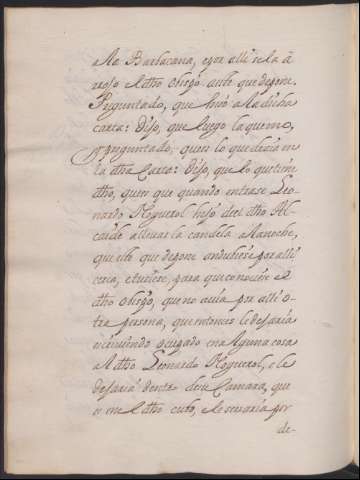 a la Barbacana, e por alli se la a
rrojo el dho obispo ante que depone.
Preguntado, que hizo a la dicha
carta: Dijo, que luego la quemo,
Preguntado, que es lo que decia en
la dha Carta: Dijo, que lo que tiene
dho, que es que quando entrase Leo-
nardo Noguerol hijo del dho Al-
caide a llevar la candela a la noche,
que este que depone andubiese por alli
cerca, e tuviese, para que conociese el
dho obispo, que no avia por alli o-
tra persona, que entonces le dejaria
en alguna cosa
al dho Leonardo Noguerol, e le
dejaria dentro de su Camara, que
es en el dho cubo, e le cerraria por
de-